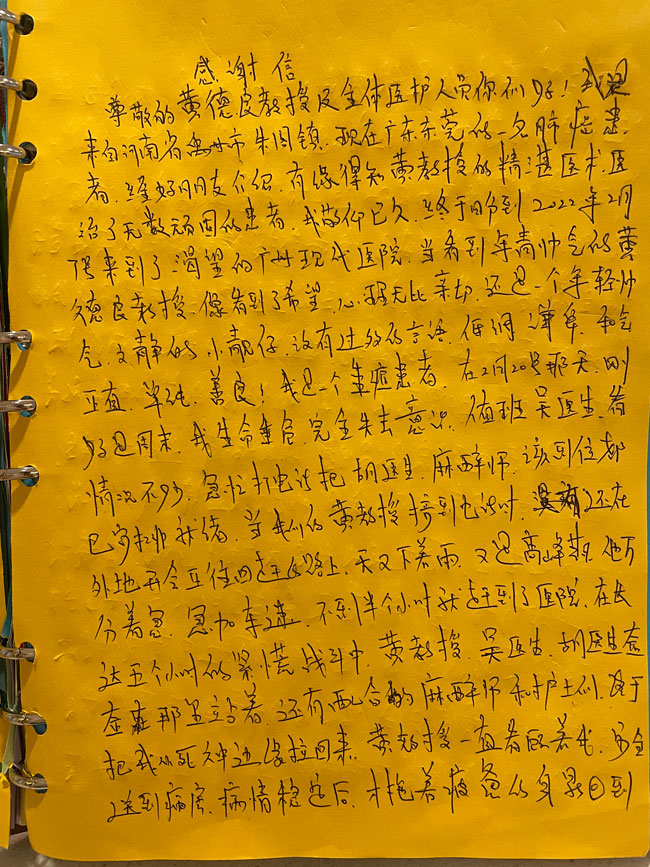 感谢信
尊敬的黄德良教授及全体医护人员你们好！我是
来自河南省禹州市朱阁镇，现在广东东莞的一名肺癌患
者，经好朋友介绍，有缘得知黄教授的精湛医术，医
治了无数顽固的患者，我敬仰已久，终于盼到2022年2月
来到了渴望的广州现代医院，当看到年青帅气的黄
德良教授，像看到了希望，心理无比亲切，还是一个年轻帅
气，文静的小靓仔，没有过多的言语，低调
正直，单纯，善良！我是一个重症患者，在2月20号那天，刚
好是周末，我生命垂危，完全失去意识，值班吴医生，看
情况不妙，急忙打电话把胡医生，麻醉师，该到位都
已安排就绪，当我们的黄教授接到电话时，还在
外地开会正往回赶的路上，天又下着雨，又是高峰期，他万
分着急，急加车速，不到半个小时就赶到了医院，在长
达五个小时的紧慌战斗中，黄教授，吴医生，胡医生在
那里站着，还有配合的麻醉师和护士们，终于
把我从死神边缘拉回来，黄教授一直看着我，安全
送到病房，病情稳定后，才拖着疲惫的身躯回到